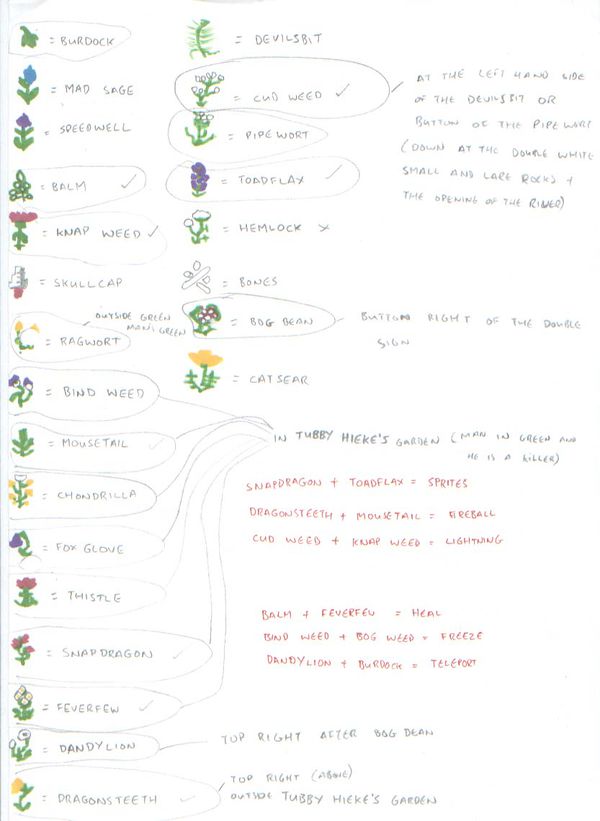 = BURDOCK
= MAD SAGE
= SPEEDWELL
= BALM ✓
= KNAP WEED ✓
= SKULLCAP
OUTSIDE GREEN
MAN, GREEN
= RAGWORT
= BIND WEED
= MOUSETAIL ✓
= CHONDRILLA
= FOX GLOVE
= THISTLE
= SNAPDRAGON ✓
= FEVERFEW ✓
= DANDYLION
= DRAGONSTEETH ✓
= DEVILSBIT
= CUD WEED ✓
= PIPEWORT
= TOADFLAX ✓
= HEMLOCK ×
= BONES
= BOG BEAN
= CATSEAR
AT THE LEFT HAND SIDE
OF THE DEVILSBIT OR
BUTTON OF THE PIPE WORT
(DOWN AT THE DOUBLE WHITE
SMALL AND LARE ROCKS +
THE OPENING OF THE RIVER)
BUTTON RIGHT OF THE DOUBLE
SIGN
IN TUBBY HIEKE'S GARDEN (MAN IN GREEN AND
HE IS A KILLER)
SNAPDRAGON + TOADFLAX = SPRITES
DRAGONSTEETH + MOUSETAIL = FIREBALL
CUD WEED + KNAP WEED = LIGHTNING
BALM + FEVERFEW = HEAL
BIND WEED + BOG WEED = FREEZE
DANDYLION + BURDOCK = TELEPORT
TOP RIGHT AFTER BOG BEAN
TOP RIGHT (ABOVE)
OUTSIDE TUBBY HIEKE'S GARDEN